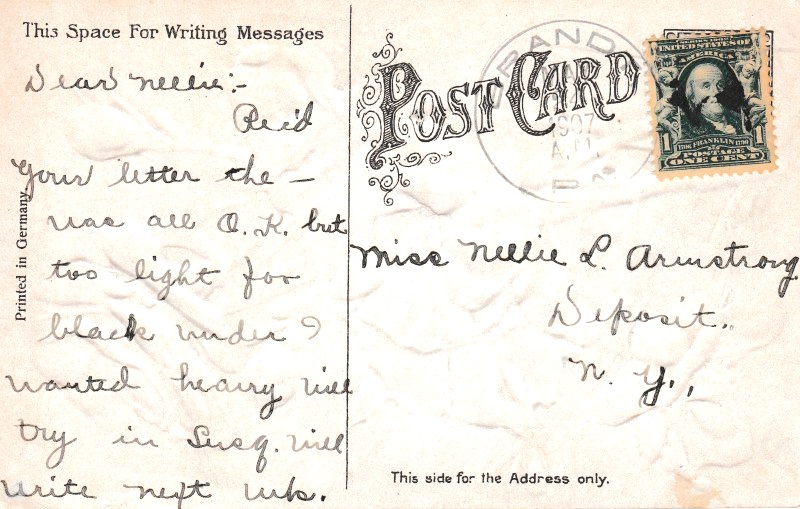 This Space For Writing Messages
Dear Nellie:-
Rec'd
Your letter the —
was all O.K. but
too light for
black under?
wanted heavy will
try in Susq. will
write next wk.
Printed in Germany.
POST CARD
BRAND
1907
A.M.
UNITED STATES OF
AMERICA
1706 FRANKLIN 1790
1 POSTAGE 1
ONE CENT
Miss Nellie L. Armstrong
Deposit,
N. Y.,
This side for the Address only.